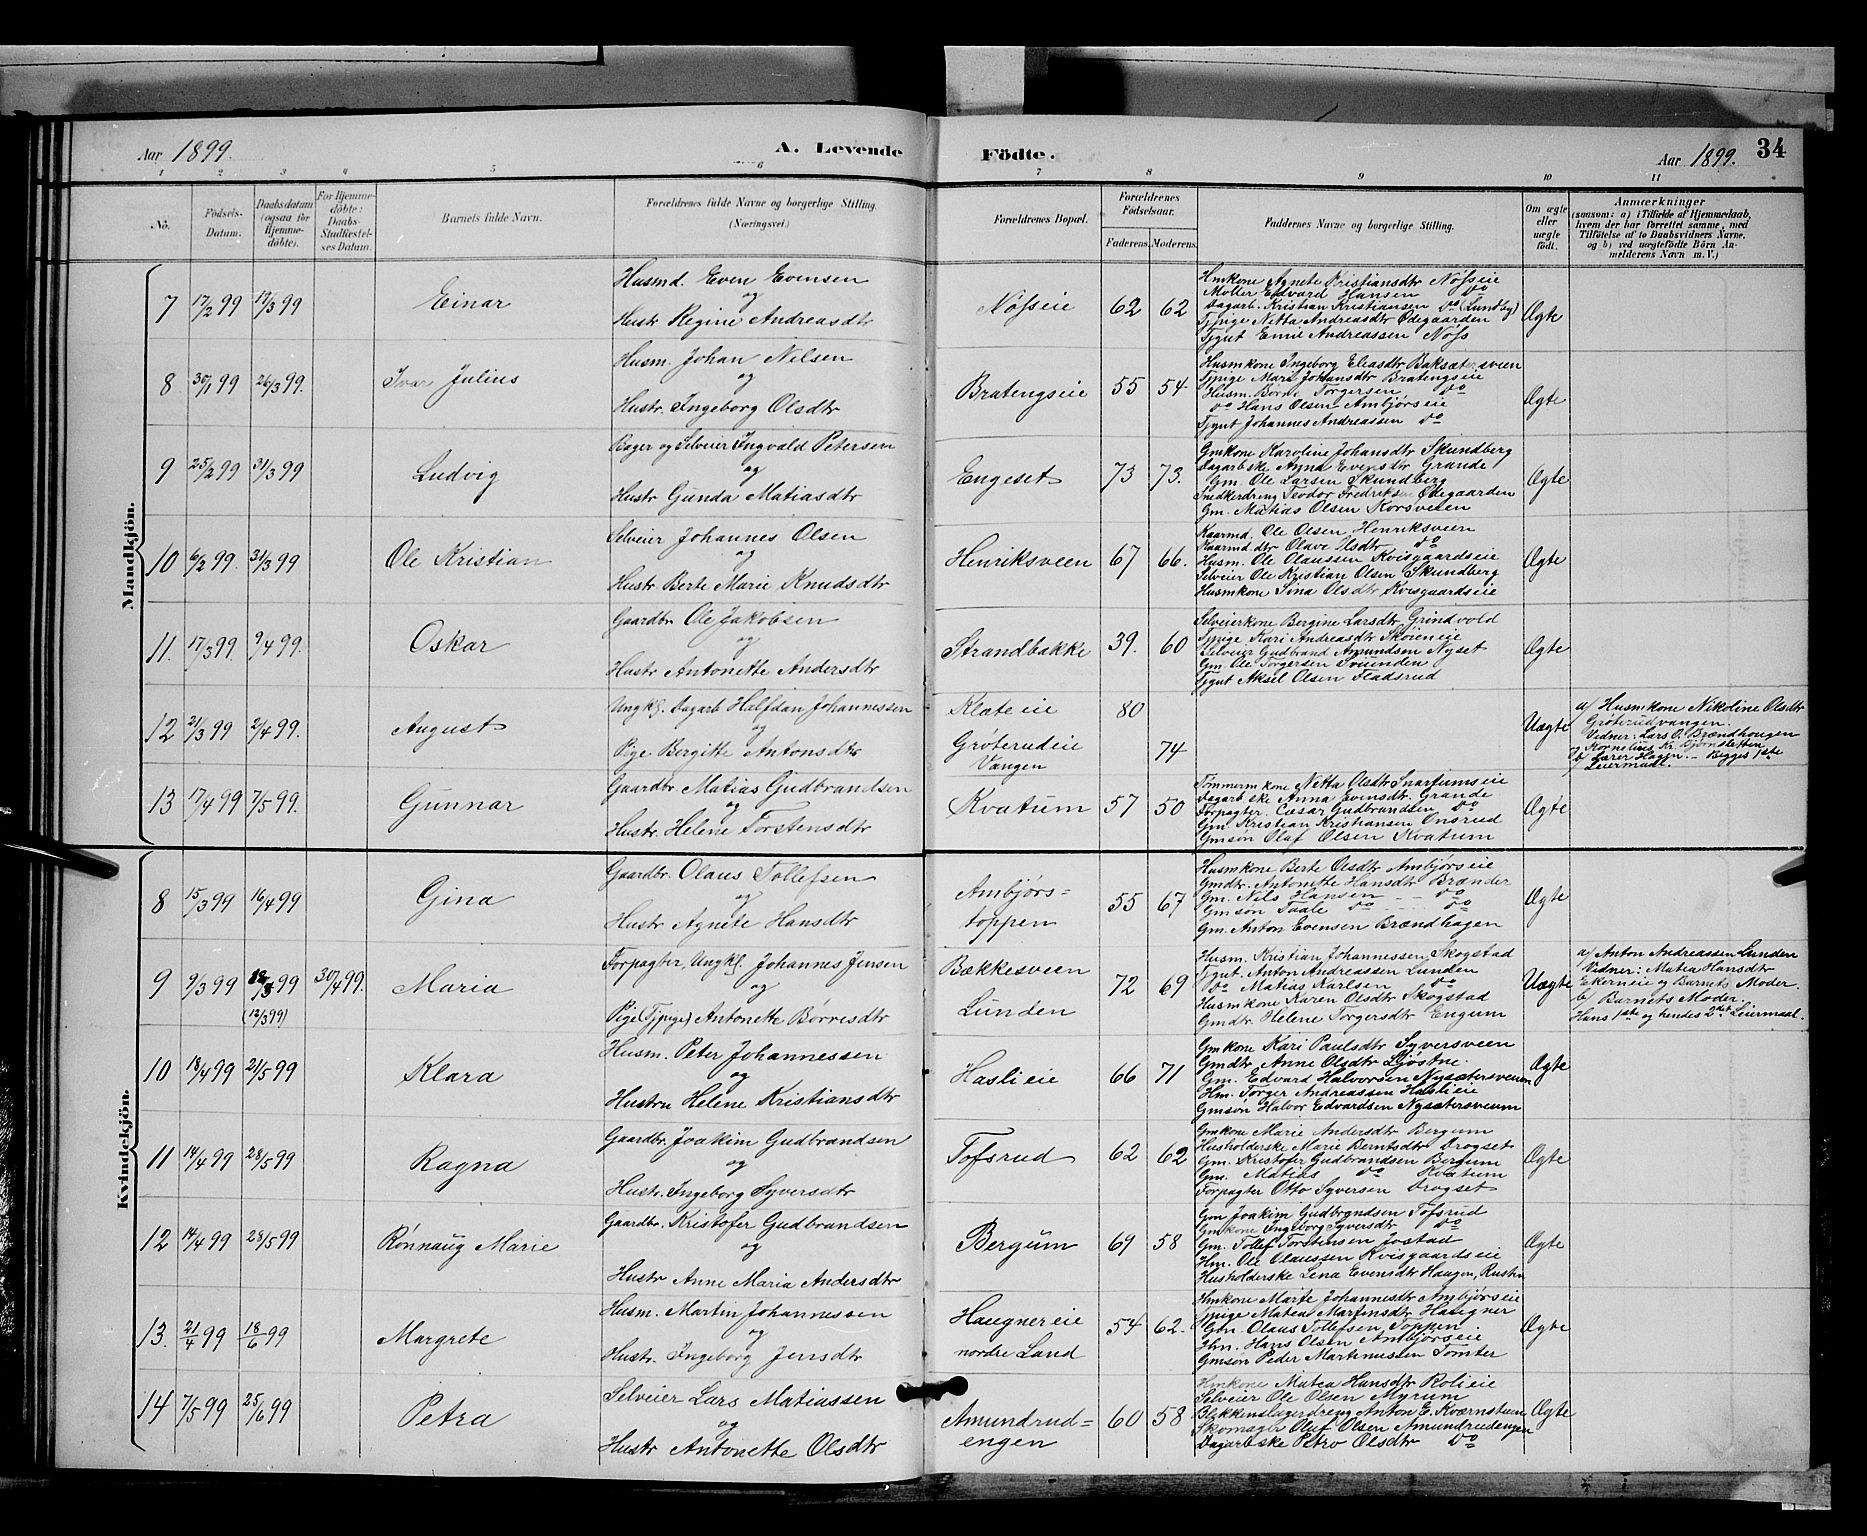 Aar 1899.
A. Levende Födte.
Aar 1899.
34
1 2 3 4 5 6 7 8 9 10 11
No.
Födsels-Datum.
Daabsdatum (ogsaa for Hjemmedöbte).
For Hjemmedöbte: Daabs-Stadfæstelses Datum.
Barnets fulde Navn.
Forældrenes fulde Navne og borgerlige Stilling. (Næringsvei.)
Forældrenes Bopæl.
Forældrenes Födselsaar.
Faderens. Moderens.
Faddernes Navne og borgerlige Stilling.
Om ægte eller uægte födt.
Anmærkninger
(saasom: a) i Tilfælde af Hjemmedaab, hvem der har forrettet samme, med Tilföielse af to Daabsvidners Navne, og b) ved uægtefödte Börn Anmelderens Navn m. V.)
Mandkjön.
7 17/2 99 19/3 99 Einar
Husmd. Even Evensen
og
Hustr Regine Andreasdtr
Nøfseie 62 62
Hmkone Agnete Kristiansdtr Nøfseie
Møller Edvard Hansen Do
Dagarb. Kristian Kristiansen Do (Lundby)
Tjpige Netta Andreasdtr Ødegaarden
Tjgut Emil Andreassen Nøfs
Ægte
8 30/1 99 26/3 99. Ivar Julius
Husm. Johan Nilsen
og
Hustr. Ingeborg Olsdtr
Bratengseie 55 54
Husmkone Ingeborg Eliasdtr Baksætersveen
Tjpige Mari Johansdtr Bratengseie
Husm. Børre Torgersen Do
Do Hans Olsen Ambjørseie
Tjgut Johannes Andreassen Do
Ægte
9 25/2 99 31/3 99 Ludvig
Bager og Selveier Ingvald Petersen
og
Hustr Gunda Matiasdtr
Engeset 73 73.
Gmkone Karoline Johansdtr Skundberg
Dagarbske Anna Evensdtr Grande
Gm. Ole Larsen Skundberg
Snedkerdreng Teodor Fredriksen Ødegaarden
Gm. Matias Olsen Korsveien
Ægte
10 6/2 99 31/3 99 Ole Kristian
Selveier Johannes Olsen
og
Hustr Berte Marie Knudsdtr
Henriksveen 67 66.
Kaarmd. Ole Olsen Henriksveen
Kaarmd.dtr Olave Olsdtr Do
Husm. Ole Olaussen Kvisgaardseie
Selveier Ole Kristian Olsen Skundberg
Husmkone Sina Olsdtr Kvisgaardseie
Ægte
11. 17/3 99. 9/4 99. Oskar
Gaardbr. Ole Jakobsen
og
Hustr Antonette Andersdtr
Strandbakke 39. 60
Selveierkone Bergine Larsdtr Grindvold
Tjpige Kari Andreasdtr Skøieneie
Selveier Gudbrand Amundsen Nyset
Gm Ole Torgersen
Tjgut Aksel Olsen Fladsrud
Ægte
12 21/3 99 2/4 99. August
Ungkl. Dagarb Halfdan Johannessen
og
Pige Bergitte Antonsdtr
Klæteie 80
Grøterudeie 74
Vangen
Uægte
a/ Husmkone Nikoline Olsdtr
Grøterudvangen.
Vidner: Lars O. Brændhougen
og Kornelius Kr. Bjørnsletten
b/ Lærer Hagen. – Begges 1ste
Leiermaal.
13 17/4 99 7/5 99. Gunnar
Gaardbr. Matias Gudbrandsen
og
Hustr. Helene Torstensdtr
Kvatum 57 50
Tømmermkone Netta Olsdtr Snartumseie
Dagarbske Anna Evensdtr. Grande
Forpagter. Cæsar Gudbrandsen Do
Gm. Kristian Kristiansen Onsrud
Gmsøn Olaf Olsen Kvatum
Ægte
Kvindekjön.
8 15/3 99 16/4 99 Gina
Gaardbr. Olaus Tollefsen
og
Hustr Agnete Hansdtr
Ambjørs=
toppen 55 67
Husmkone Berte Olsdtr Ambjørseie
Gmdtr. Antonette Hansdtr Brænder
Gm. Nils Hansen – – Do
Gmsøn Paale Do Do
Gm. Anton Evensen Brændhagen
Ægte
9 9/3 99 12/3 99 (12/3 99) 30/4 99. Maria
Forpagter, Ungkl. Johannes Jensen
og
Pige (Tjpige) Antonette Børresdtr
Bækkesveen 72 69
Lunden
Husm. Kristian Johannessen Skogstad
Tjgut. Anton Andreassen Lunden
Do Matias Karlsen Do
Husmkone Karen Olsdtr Skogstad
Gmdtr. Helene Torgersdtr Engum
Uægte
a/ Anton Andreassen Lunden
Vidner: Matea Hansdtr
Ekerneie og Barnets Moder.
b/ Barnets Moder.
Hans 1ste og hendes 2det Leiermaal.
10 18/4 99 21/5 99 Klara
Husm. Peter Johannessen
og
Hustru Helene Kristiansdtr
Haslieie 66 71
Gmkone Kari Paulsdtr Syversveen
Gmdtr. Anne Olsdtr Sjøstne.
Gm. Edvard Halvorsen Nysætersveum
Hm. Torger Andreassen Haslieie
Gmsøn Halvor Edvardsen Nysætersveum
Ægte
11 14/4 99 28/5 99 Ragna
Gaardbr. Joakim Gudbrandsen
og
Hustr. Ingeborg Syversdtr
Tofsrud 62 62
Gmkone Marie Andersdtr Bergum
Husholderske Marie Berntsdtr Drogset
Gm. Kristofer Gudbrandsen Bergum
Gm. Matias Do Kvatum
Forpagter Otto Syversen Drogset
Ægte
12 14/4 99 28/5 99 Rønnaug Marie
Gaardbr. Kristofer Gudbrandsen
og
Hustr Anne Maria Andersdtr
Bergum 69 58
Gm Joakim Gudbrandsen Tofsrud
Gmkone Ingeborg Syversdtr Do
Gm. Tollef Torstensen Jostad
Hm. Ole Olaussen Kvisgaardseie
Husholderske Lena Evensdtr Haugen, Rusten
Ægte
13. 21/4 99 18/6 99 Margrete
Husm. Martin Johannessen
og
Hustr. Ingeborg Jensdtr
Haugnereie
nordre Land 54 62.
Hmkone Marte Johannesdtr Ambjørseie
Tjpige Matea Martinsdtr Haugner
Gm. Olaus Tollefsen Toppen
Hm. Hans Olsen Ambjørseie
Gmsøn Peder Martinussen Tomter
Ægte
14 7/5 99 25/6 99 Petra
Selveier Lars Matiassen
og
Hustr Antonette Olsdtr
Amundrud=
engen 60 58
Hmkone Matea Hansdtr Rolieie
Selveier Ole Olsen Myrum
Blikkenslagerdreng Anton E. Kværnstuen
Skomager Oluf Olsen Amundrudengen
Dagarbske Petro Olsdtr Do
Ægte